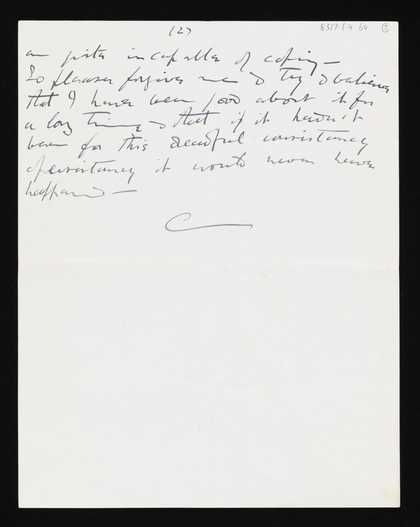 (2)
am quite incapable of coping —
So please forgive me & try & believe
that I have been good about it for
a long time & that if it hadn't
been for this dreadful consistancy
of it would never have
happened —
C